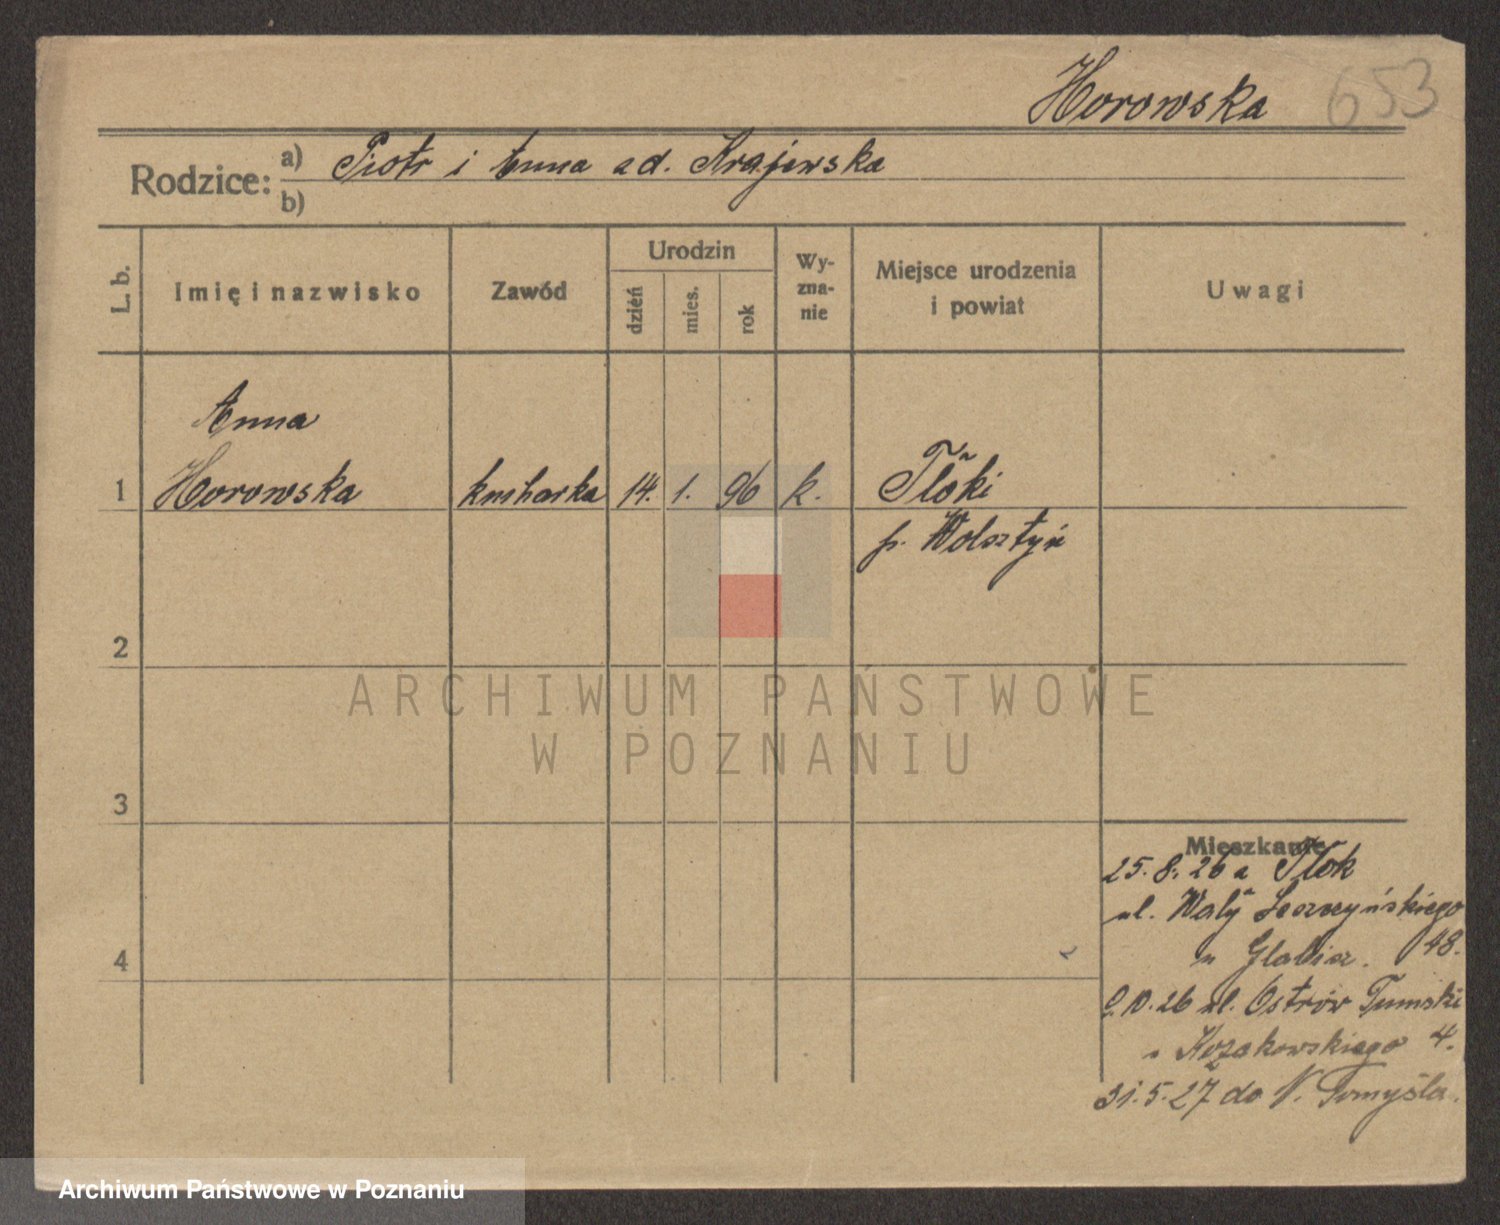 Horowska 653
Rodzice: a) Piotr i Anna z d. Krajewska
b)
L. b.
Imię i nazwisko
Zawód
Urodzin
dzień
mies.
rok
Wy-
zna-
nie
Miejsce urodzenia
i powiat
Uwagi
Anna
1 Horowska kucharka 14. 1. 96 k. Tłoki
p. Wolsztyn
2
3
4
Mieszkanie
25.8.26 z Tłok
ul. Wały Leszczyńskiego
u 48.
10.26 ul. Ostrów Tumski
u Kozakowskiego 4.
31.5.27 do N. Tomyśla.
ARCHIWUM PAŃSTWOWE
W POZNANIU
Archiwum Państwowe w Poznaniu